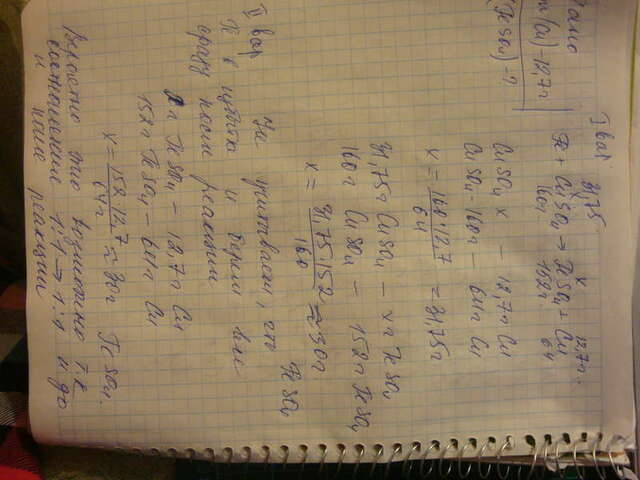 Дано
m(Cu) 12,7г
(FeSO4) - ?
I вар.
31,75 x 12,7г
Fe + CuSO4 → FeSO4 + Cu
160г 152г 64
CuSO4 x - 12,7г Cu
CuSO4 - 160г - 64г Cu
x = 160·12,7 / 64 = 31,75г
31,75г CuSO4 - xг FeSO4
160г CuSO4 - 152г FeSO4
x = 31,75·152 / 160 ≈ 30г FeSO4
II вар
Не учитываем, что
Fe в избытке и берем вес
сразу после реакции
xг FeSO4 - 12,7г Cu
152г FeSO4 - 64г Cu
x = 152·12,7 / 64г ≈ 30г FeSO4.
Вероятно это возможно т.к
соотношение 1:1 → 1:1 и до
и после реакции